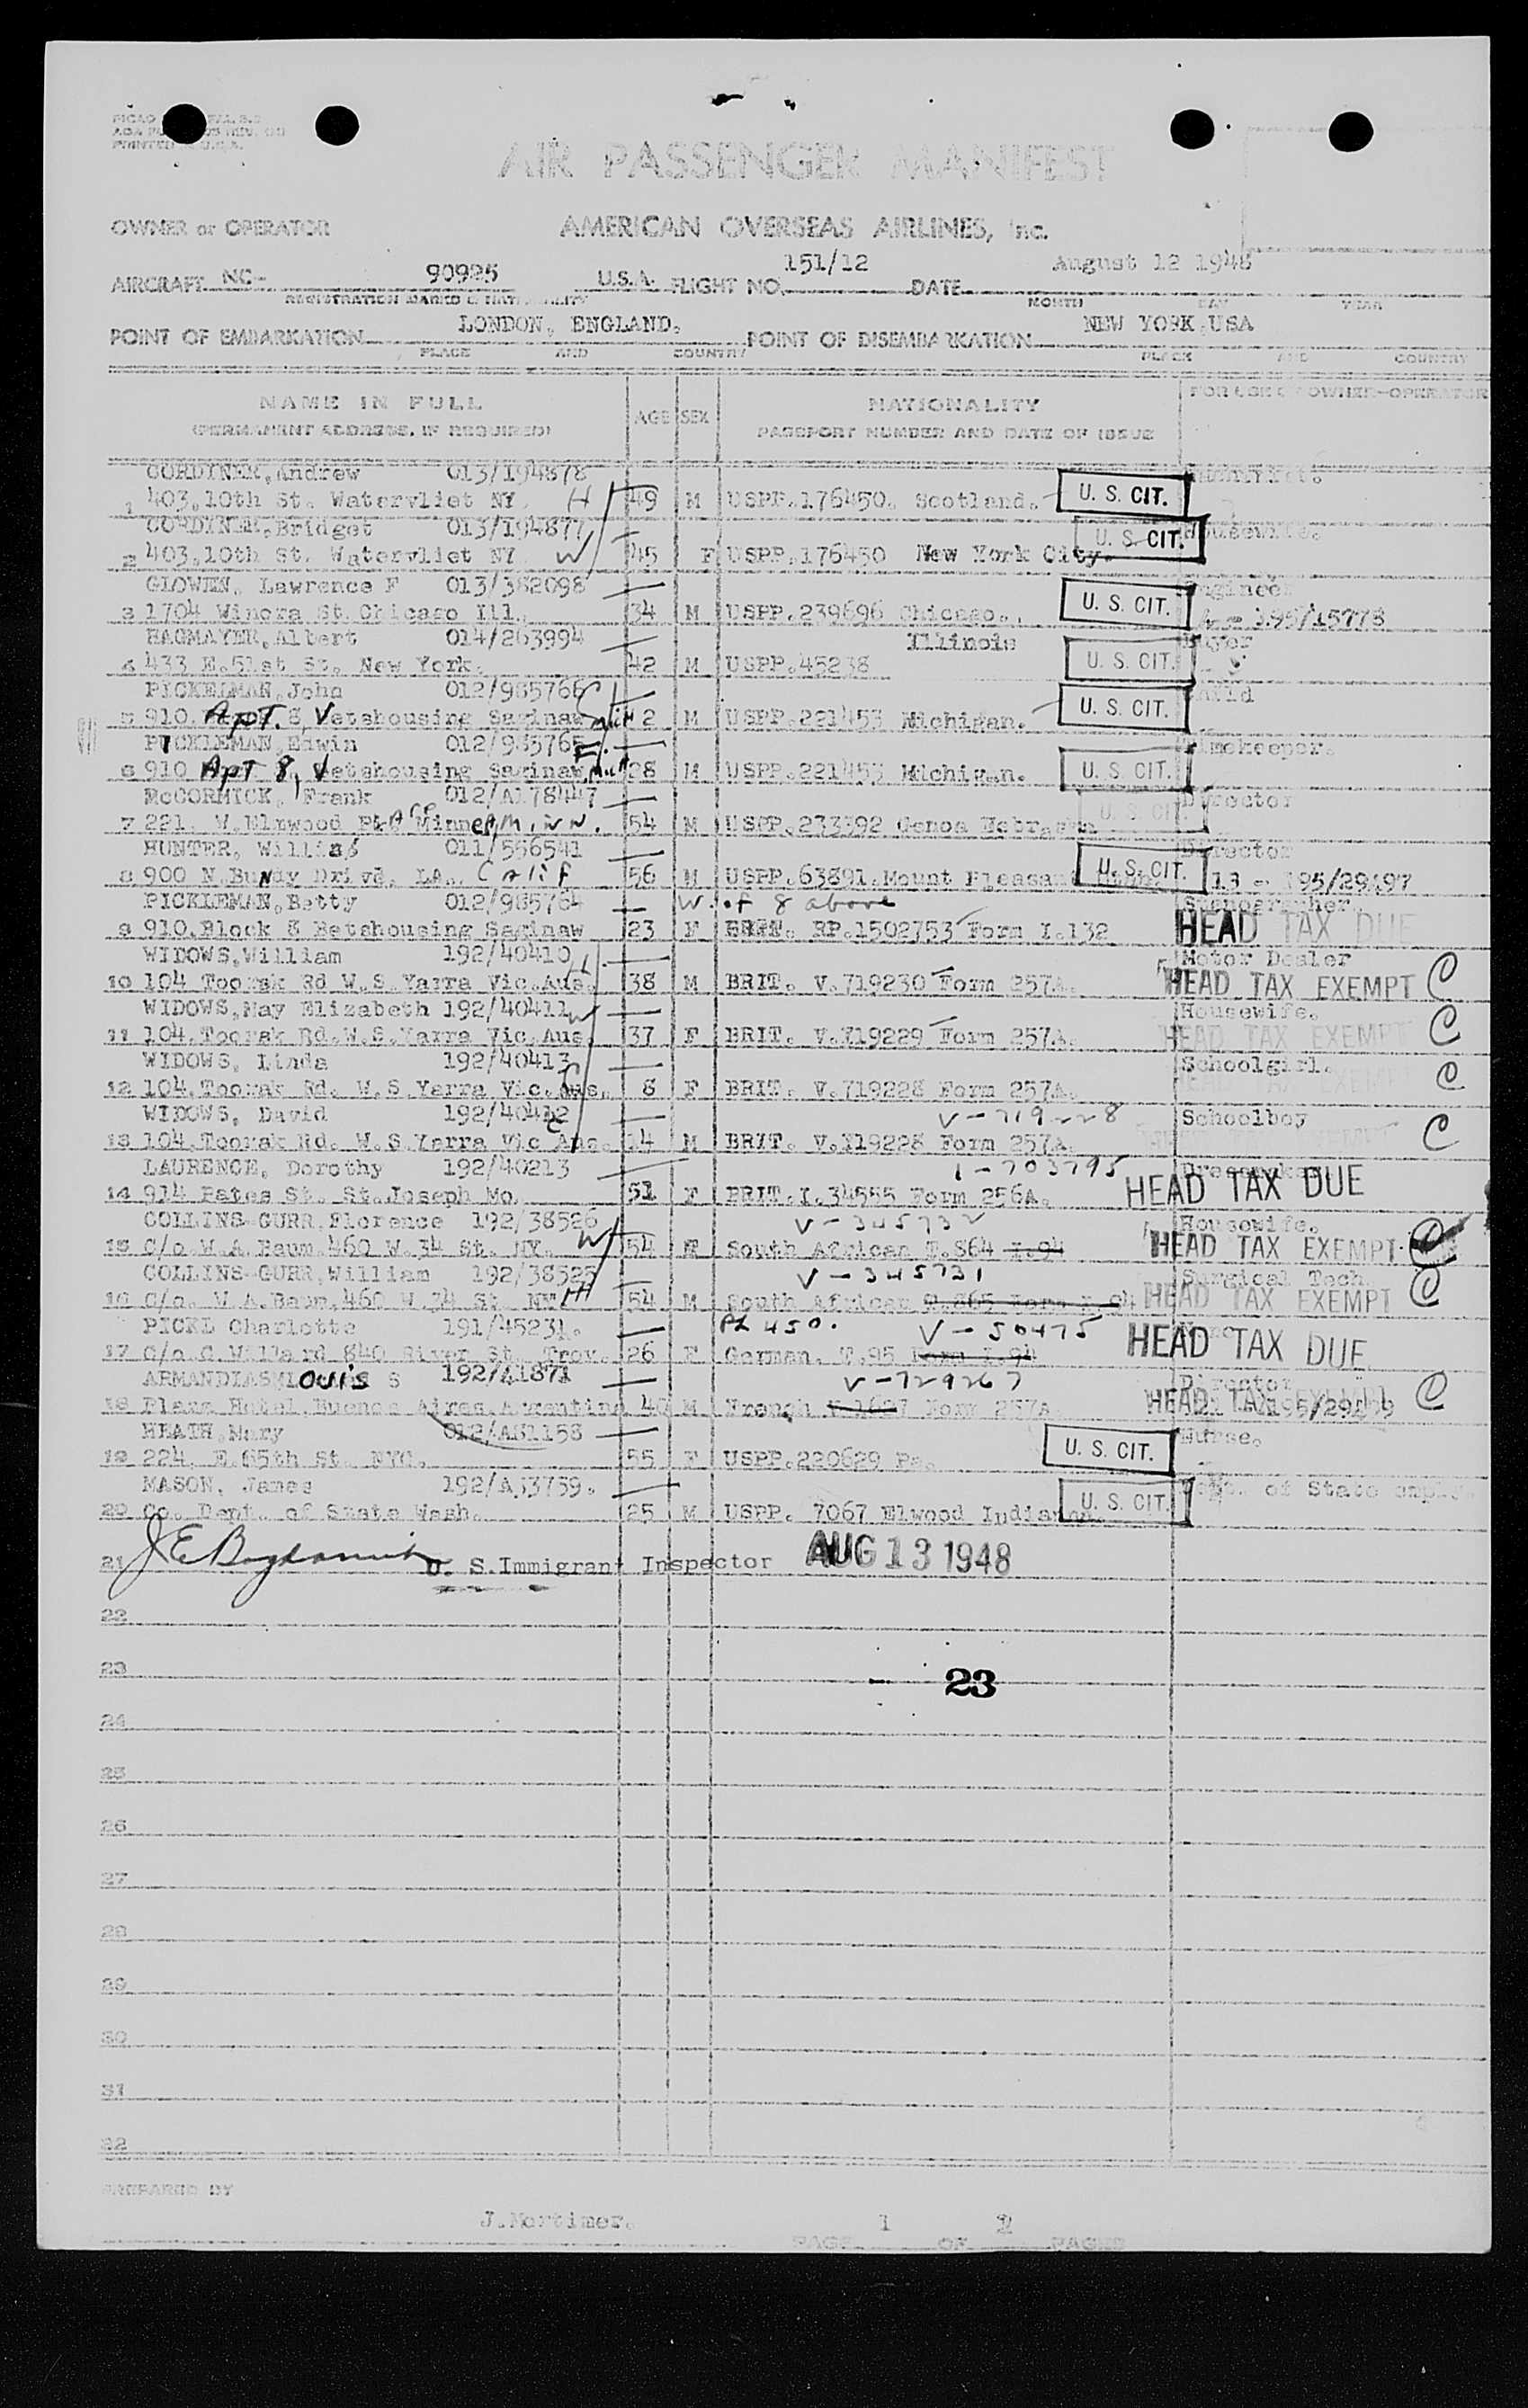 PRINTED U.S.A.
AIR PASSENGER MANIFEST
OWNER or OPERATOR AMERICAN OVERSEAS AIRLINES, Inc.
AIRCRAFT NC- 90925 U.S.A. FLIGHT NO. 151/12 DATE August 12 1948
REGISTRATION MARKS & NATIONALITY MONTH DAY YEAR
POINT OF EMBARKATION LONDON, ENGLAND. POINT OF DISEMBARKATION NEW YORK USA
PLACE AND COUNTRY PLACE AND COUNTRY
NAME IN FULL AGE SEX NATIONALITY FOR USE OF OWNER-OPERATOR
(PERMANENT ADDRESS, IF REQUIRED) PASSPORT NUMBER AND DATE OF ISSUE
CORDINER, Andrew 013/194878
1 403, 10th St. Watervliet NY. H 49 M USPP. 176450. Scotland. U. S. CIT.
CORDINER, Bridget 013/194877 Housewife.
2 403, 10th St. Watervliet NY W 45 F USPP. 176450 New York City. U. S. CIT.
GLOWEN, Lawrence F 013/382098 Engineer
3 1704 Winora St. Chicago Ill. 34 M USPP. 239696 Chicago. U. S. CIT. 195/15778
HAGMAYER, Albert 014/263994 Illinois Buyer
4 433 E. 51st St. New York. 42 M USPP. 45238 U. S. CIT.
PICKELMAN, John 012/985766 Child
5 910. Apt. 8 Vetshousing Saginaw Mich 2 M USPP. 221453 Michigan. U. S. CIT.
PICKLEMAN, Edwin 012/985765 Timekeeper.
6 910 Apt 8, Vetshousing Saginaw, Mich 28 M USPP. 221453 Michigan. U. S. CIT.
McCORMICK, Frank 012/A178447 Director
7 221. W. Elmwood Place Minneap, MINN. 54 M USPP. 273392 Genoa Nebraska U. S. CIT.
HUNTER, William 011/556541 Director
8 900 N. Bundy Drive, LA., Calif 56 M USPP. 63891. Mount Pleasant U. S. CIT. 13 - 195/29497
PICKLEMAN, Betty 012/985764 W. of 8 above Stenographer.
9 910, Block 8 Betshousing Saginaw 23 F RP. 1502753 Form I.132 HEAD TAX DUE
WIDOWS, William 192/40410 H. Motor Dealer
10 104 Toorak Rd W.S. Yarra Vic. Aus. 38 M BRIT. V. 719230 Form 257A. HEAD TAX EXEMPT C
WIDOWS, May Elizabeth 192/40411 W Housewife.
11 104, Toorak Rd. W.S. Yarra Vic. Aus. 37 F BRIT. V. 719229 Form 257A. HEAD TAX EXEMPT C
WIDOWS, Linda 192/40413 Schoolgirl.
12 104, Toorak Rd. W.S. Yarra Vic. Aus. 8 F BRIT. V. 719228 Form 257A. HEAD TAX EXEMPT C
WIDOWS, David 192/40412 V-719228 Schoolboy
13 104, Toorak Rd. W.S. Yarra Vic Aus. 14 M BRIT. V. 719228 Form 257A. C
LAURENCE, Dorothy 192/40213 I-703795 Dressmaker
14 914 Bates St. St. Joseph Mo. 51 F BRIT. I. 34555 Form 256A. HEAD TAX DUE
COLLINS-GURR, Florence 192/38526 V-345732 Housewife.
15 C/o. W.A. Baum, 460 W. 34 St. NY. W 54 F South African T. 864 I.94 HEAD TAX EXEMPT C
COLLINS-GURR, William 192/38525 V-345731 Surgical Tech.
16 C/o. W.A. Baum, 460 W. 34 St. NY H 54 M South African T. 865 Form I.94 HEAD TAX EXEMPT C
PICKL Charlotte 191/45231. PL 450. V-50475
17 C/o. C. Willard 840 River St. Troy. 26 F German. T. 95 Form I.94 HEAD TAX DUE
192/41871 V-729267 Director
18 Plaza Hotel, Buenos Aires, Argentina 40 M French Form 257A HEAD TAX C
HEATH, Mary 012/A81158 Nurse.
19 224, E. 65th St. NYC. 55 F USPP. 220629 Pa. U. S. CIT.
MASON, James 192/A33759. Dept. of State
20 Co. Dept. of State Wash. 25 M USPP. 7067 Elwood Indiana. U. S. CIT.
21 U. S. Immigrant Inspector AUG 13 1948
22
23 23
24
25
26
27
28
29
30
31
32
PREPARED BY
J. Mortimer. PAGE 1 OF 2 PAGES